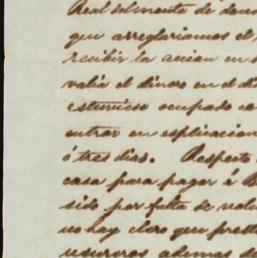 Real del monte de dan
que arreglariamos el
recibir la accion en
valia el dinero en el di
estuviese ocupado ca
entrar en esplicacion
ó tres dias. Respecto
casa para pagar á
sido por falta de volu
no hay cloro que prest
usureros ademas d